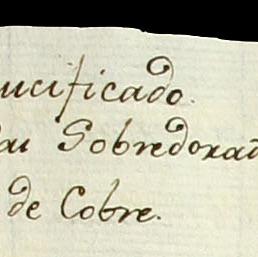 ucificado.
au Sobredorad
de Cobre.